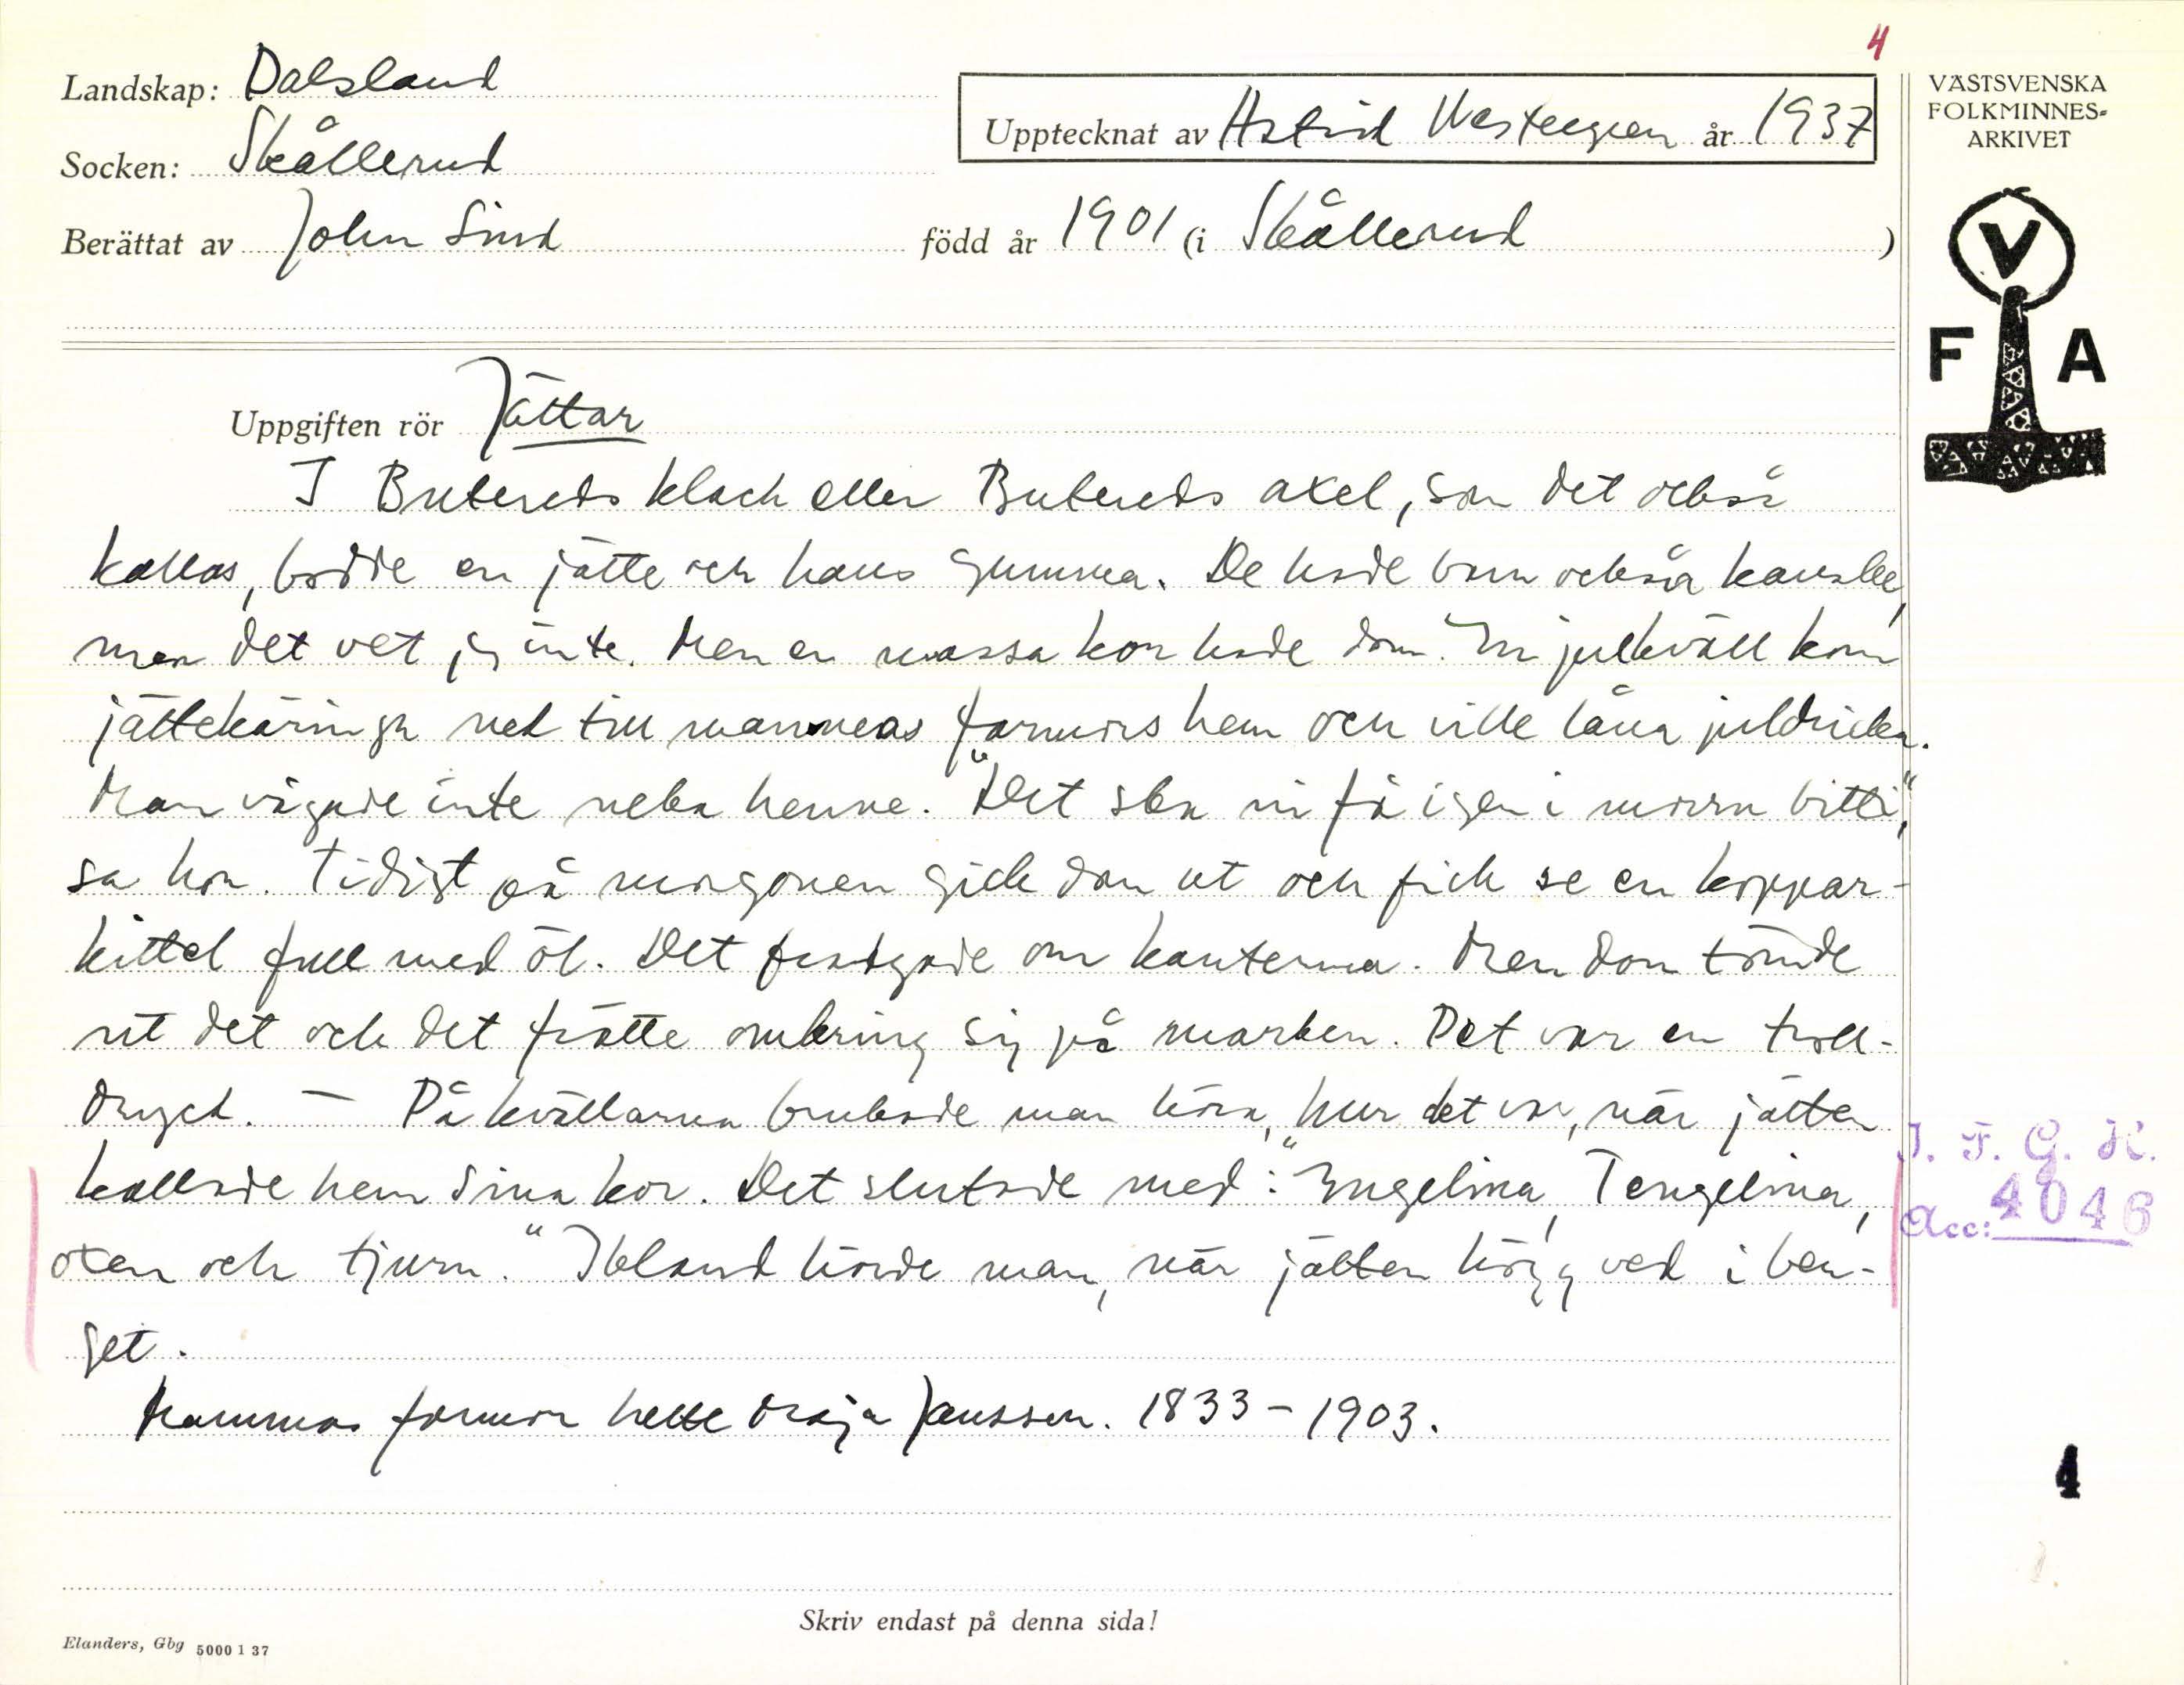 4
Landskap: Dalsland
Socken: Skållerud
Upptecknat av Astrid Westergren år 1937
Berättat av John Sund född år 1901 (i Skållerud )
VÄSTSVENSKA
FOLKMINNES-
ARKIVET
V
F A
Uppgiften rör Jättar
I Buterud klack eller Buteruds axel, som det också
kallas, bodde en jätte och hans gumma. De hade barn också kanske,
men det vet jag inte. Men en massa kor hade dom. En julkväll kom
jättekäringa ned till mammas farmors hem och ville låna juldricka.
Man vågade inte neka henne. "Det ska ni få igen i morrn bitti,"
sa hon. Tidigt på morgonen gick dom ut och fick se en koppar-
kittel full med öl. Det fradgade om kanterna. Men dom tömde
ut det och det frätte omkring sig på marken. Det var en troll-
dryck. — På kvällarna brukade man höra, hur det var, när jätten
kallade hem sina kor. Det slutade med: "Engelina, Tengelina,
oxen och tjurn." Ibland hörde man, när jätten högg ved i ber-
get.
Mammas farmor hette Maja Janssen. 1833-1903.
I. F. G. H.
Acc: 4046
4
Skriv endast på denna sida!
Elanders, Gbg 5000 1 37